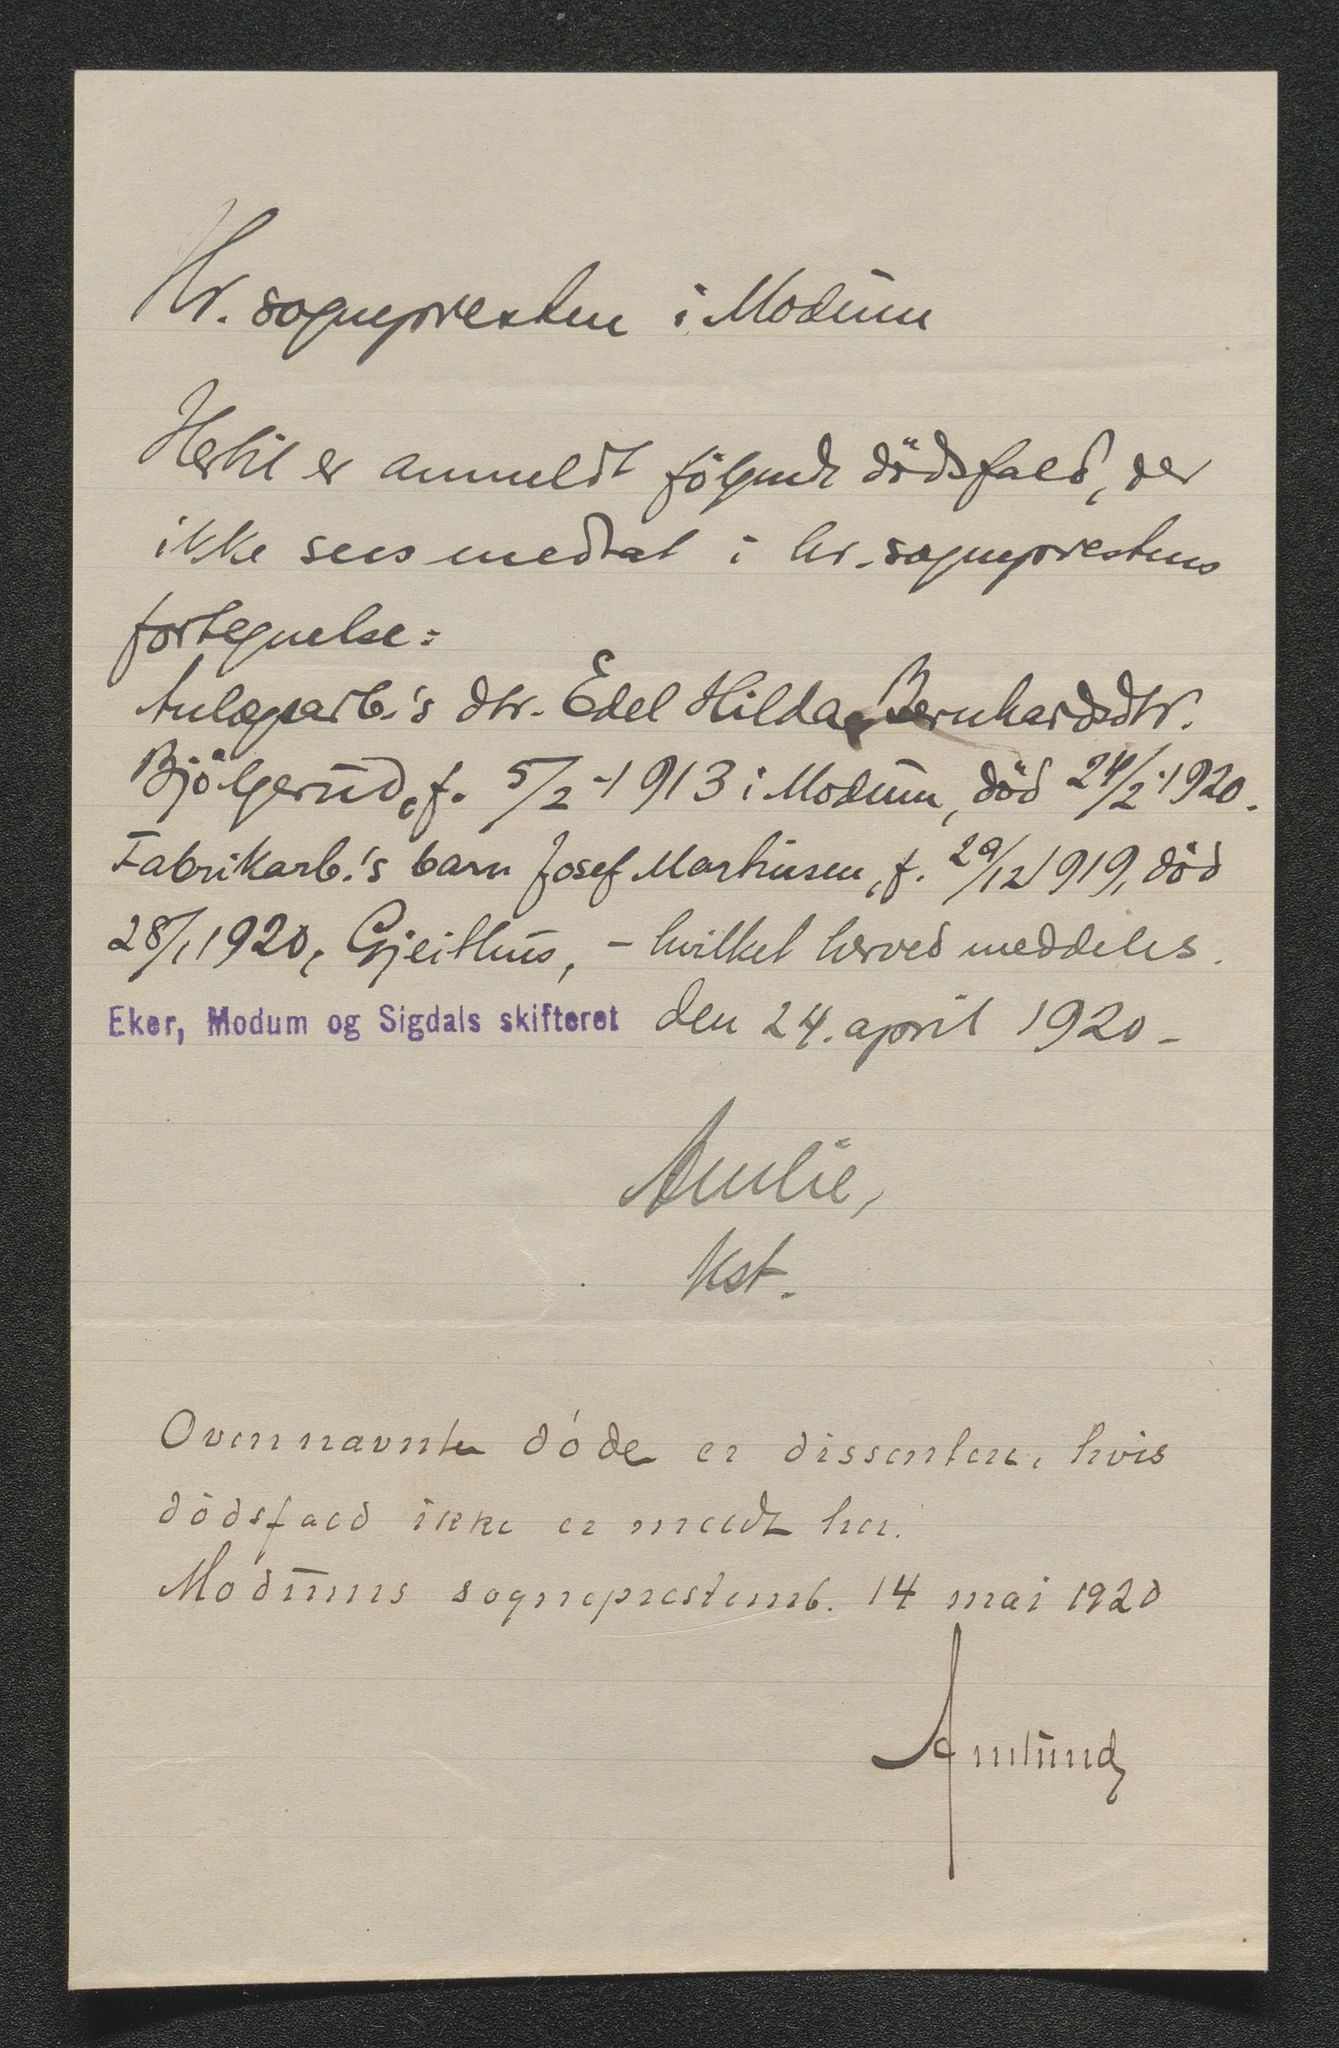 Hr. sognepresten i Modum
Hertil er anmeldt følgende dödsfald, der
ikke sees medtat i hr. sogneprestens
fortegnelse:
Anlægsarb.'s dtr. Edel Hilda Bernhardsdtr.
Bjölgerud, f. 5/2-1913 i Modum, död 24/2-1920.
Fabrikarb.'s barn Josef Martinsen, f. 29/12 1919, död
28/1 1920, Gjeithus, - hvilket herved meddeles.
Eker, Modum og Sigdals skifteret den 24. april 1920 -
Kst.
Ovennavnte døde er dissentere, hvis
dödsfald ikke er meldt her.
Modums sogneprestemb. 14 mai 1920
Amlund